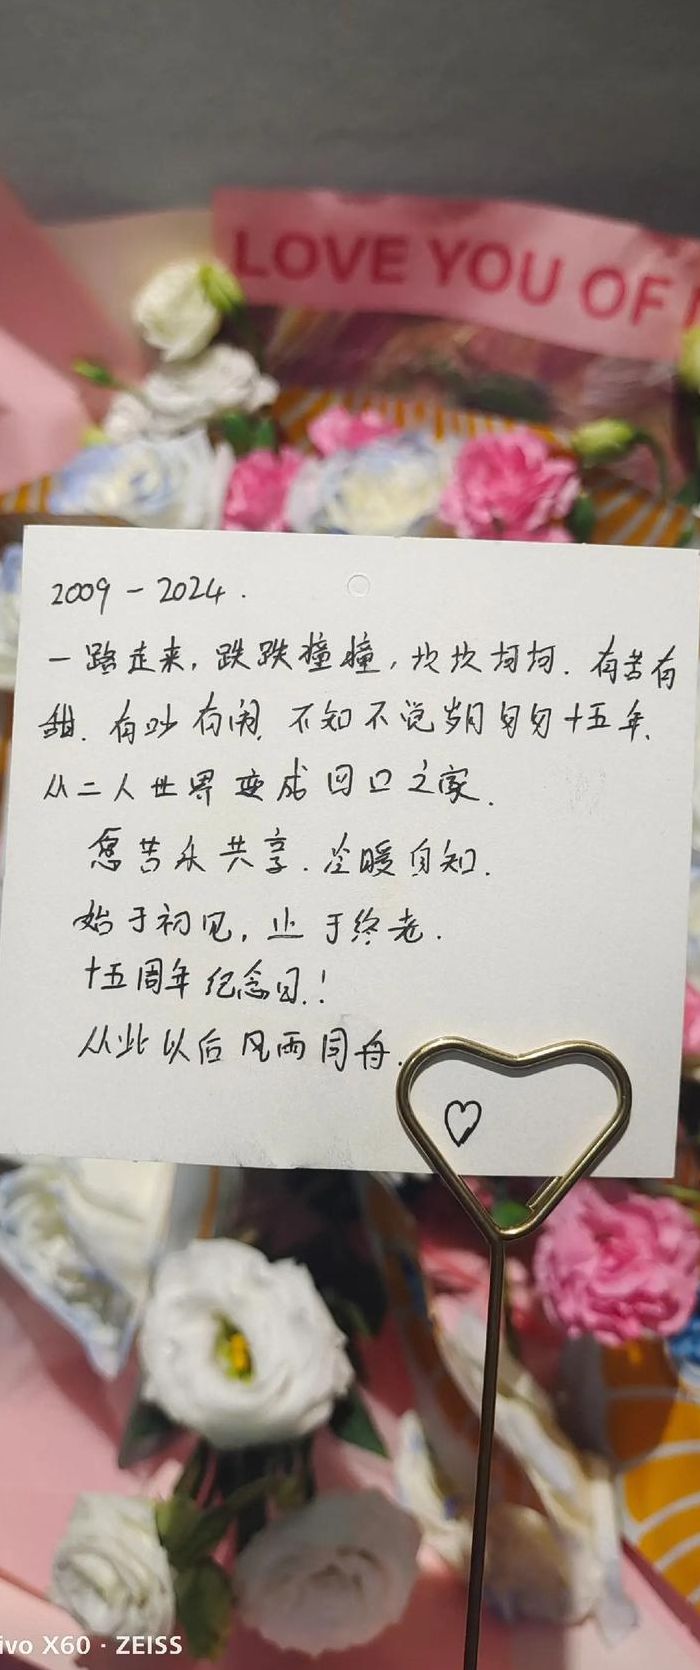 LOVE YOU OF
2009 - 2024.
一路走来,跌跌撞撞,坎坎坷坷.有苦有
甜.有吵有闹,不知不觉岁月匆匆十五年.
从二人世界变成四口之家.
愿苦乐共享.冷暖自知.
始于初见,止于终老.
十五周年纪念日.!
从此以后风雨同舟.
vivo X60 · ZEISS